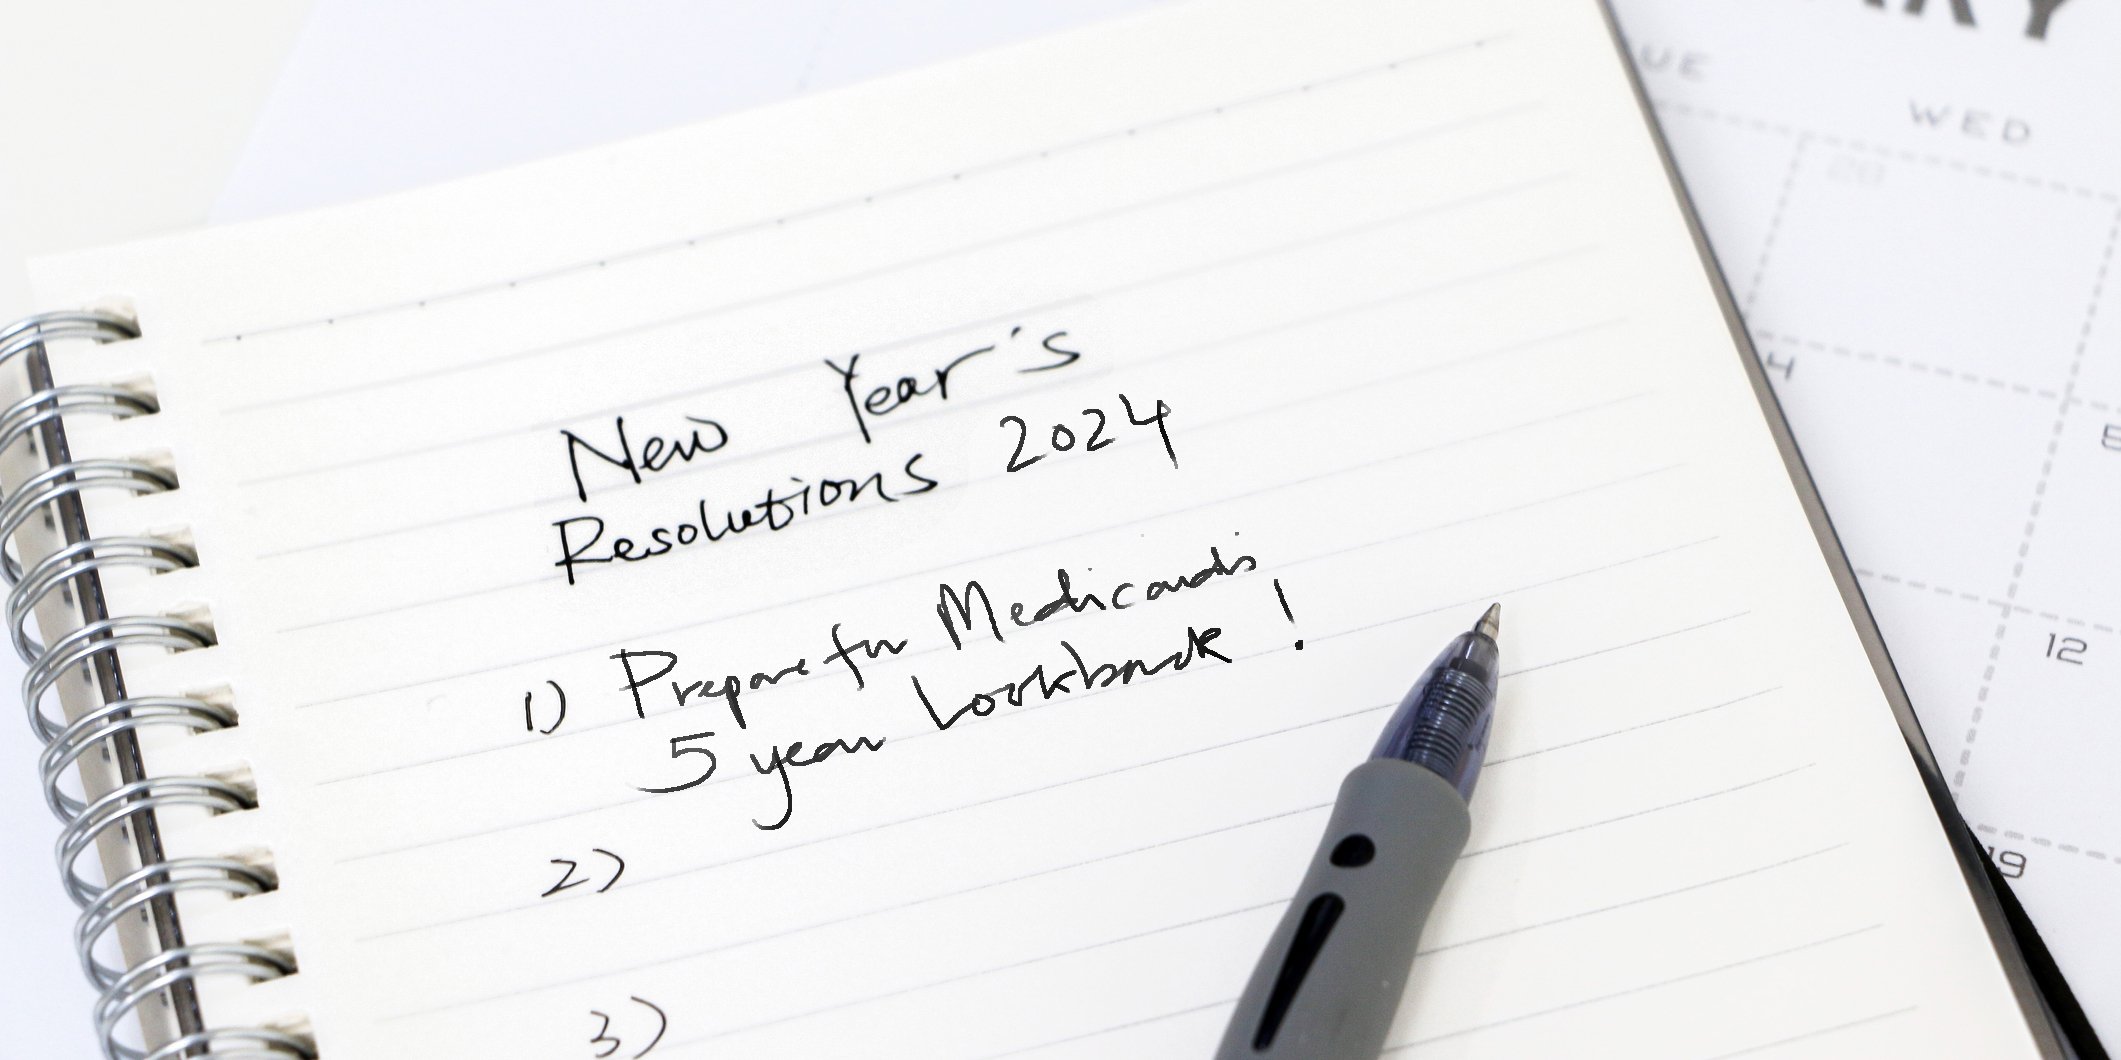 New Year's
Resolutions 2024
1) Prepare for Medicaid's
5 year Lookback!
2)
3)
UE
WED
20
4
5
12
19